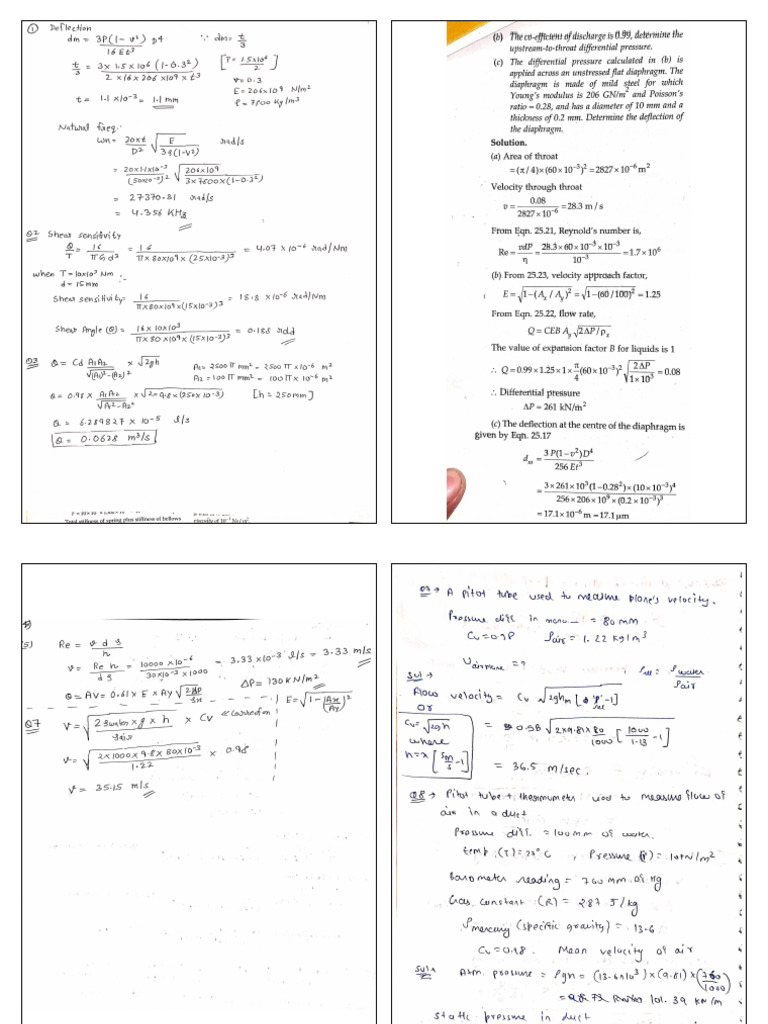 ① Deflection
dm = 3P(1-ν²) r4 / 16Et³ ∵ dm = t/3
t/3 = 3 x 1.5 x 10⁶ (1-0.3²) / 2 x 16 x 206 x 10⁹ x t³ [P = 1.5x10⁶ / 2]
ν = 0.3
E = 206x10⁹ N/m²
t = 1.1 x10⁻³ = 1.1 mm
ρ = 7500 Kg/m³
Natural freq:-
wn = 20xt / D² √ E / 3ρ(1-ν²) rad/s
= 20x1.1x10⁻³ / (50x10⁻³)² √ 206x10⁹ / 3x7500x(1-0.3²)
= 27370.81 rad/s
= 4.356 KHz
Q2 Shear sensitivity
θ/T = 16 / πGd³ = 16 / πx80x10⁹x(25x10⁻³)³ = 4.07 x 10⁻⁶ rad/Nm
when T = 10x10³ Nm :-
d = 15mm
Shear sensitivity = 16 / πx80x10⁹x(15x10⁻³)³ = 18.8 x10⁻⁶ rad/Nm
Shear Angle (θ) = 16x10x10³ / πx80x10⁹x(15x10⁻³)³ = 0.188 rad
Q3 Q = Cd A1A2 / √(A1)²-(A2)² x √2gh
A1 = 2500π mm² = 2500π x10⁻⁶ m²
A2 = 100π mm² = 100π x10⁻⁶ m²
Q = 0.98 x A1A2 / √A1²-A2² x √2x9.8x(250x10⁻³) [h = 250mm]
Q = 6.289827 x 10⁻⁵ l/s
Q = 0.0628 m³/s
Total stiffness of spring plus stiffness of bellows
(b) The co-efficient of discharge is 0.99, determine the
upstream-to-throat differential pressure.
(c) The differential pressure calculated in (b) is
applied across an unstressed flat diaphragm. The
diaphragm is made of mild steel for which
Young's modulus is 206 GN/m² and Poisson's
ratio = 0.28, and has a diameter of 10 mm and a
thickness of 0.2 mm. Determine the deflection of
the diaphragm.
Solution.
(a) Area of throat
= (π/4)×(60×10⁻³)² = 2827×10⁻⁶ m²
Velocity through throat
v = 0.08 / 2827×10⁻⁶ = 28.3 m/s
From Eqn. 25.21, Reynold's number is,
Re = vdP / η = 28.3×60×10⁻³×10⁻³ / 10⁻³ = 1.7×10⁶
(b) From 25.23, velocity approach factor,
E = √1-(Ay / Ax)² = √1-(60/100)² = 1.25
From Eqn. 25.22, flow rate,
Q = CEB Ay √2ΔP/ρx
The value of expansion factor B for liquids is 1
∴ Q = 0.99×1.25×1×π/4(60×10⁻³)² √ 2ΔP / 1×10³ = 0.08
∴ Differential pressure
ΔP = 261 kN/m²
(c) The deflection at the centre of the diaphragm is
given by Eqn. 25.17
dm = 3P(1-ν²)D⁴ / 256 Et³
= 3×261×10³(1-0.28²)×(10×10⁻³)⁴ / 256×206×10⁹×(0.2×10⁻³)³
= 17.1×10⁻⁶ m = 17.1 μm
5) Re = v d ρ / η
v = Re η / dρ = 10000 x10⁻⁶ / 30x10⁻³x1000 = 3.33 x10⁻³ l/s = 3.33 m/s
ΔP = 130 KN/m²
Q = AV = 0.61 x E x Ay √
E = √1-(Ax/Ay)²
Q7 V = √ 2ρwater x g x h / ρair x Cv
V = √ 2x1000x9.8x80x10⁻³ / 1.22 x 0.98
V = 35.15 m/s
Q7 → A pitot tube used to measure plane's velocity.
Pressure diff in = 80 mm
Cv = 0.98 ρair = 1.22 kg/m³
Vairplane = ? ρrel = ρwater / ρair
Sol →
Flow velocity = Cv √2ghm [ρrel -1]
or
Cv = √2gh
where
h = x [ρm/ρ -1]
= 0.98 √ 2x9.81x80 / 1000 [1000 / 1.13 -1]
= 36.5 m/sec.
Q8 → Pitot tube + thermometer used to measure flow of
air in a duct
Pressure diff. = 100 mm of water.
temp. (T) = °C , Pressure (P) = 10 kN/m²
Barometer reading = 760 mm of Hg
Gas constant (R) = 287 J/kg
ρmercury (specific gravity) = 13.6
Cv = 0.98. Mean velocity of air
Sol → Atm. pressure = ρgh = (13.6x10³)x(9.81)x(760/1000)
= 101.39 kN/m
static pressure in duct